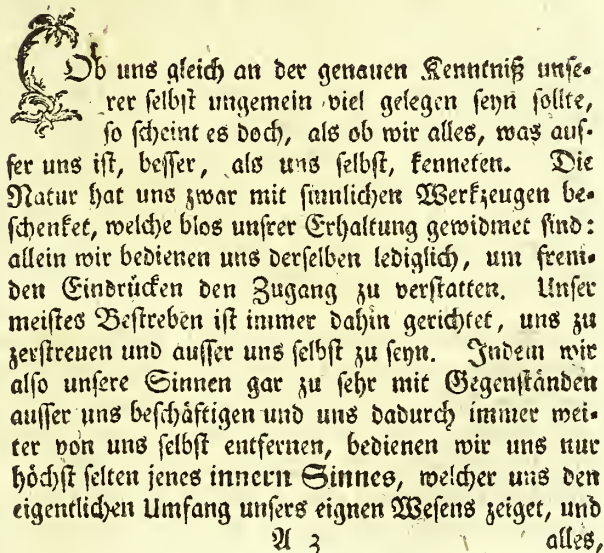 Ob uns gleich an der genauen Kenntniß unse-
rer selbst ungemein viel gelegen seyn sollte,
so scheint es doch, als ob wir alles, was aus-
ser uns ist, besser, als uns selbst, kenneten. Die
Natur hat uns zwar mit sinnlichen Werkzeugen be-
schenket, welche blos unsrer Erhaltung gewidmet sind:
allein wir bedienen uns derselben lediglich, um frem-
den Eindrücken den Zugang zu verstatten. Unser
meistes Bestreben ist immer dahin gerichtet, uns zu
zerstreuen und ausser uns selbst zu seyn. Indem wir
also unsere Sinnen gar zu sehr mit Gegenständen
ausser uns beschäftigen und uns dadurch immer wei-
ter von uns selbst entfernen, bedienen wir uns nur
höchst selten jenes innern Sinnes, welcher uns den
eigentlichen Umfang unsers eignen Wesens zeiget, und
A 3 alles,